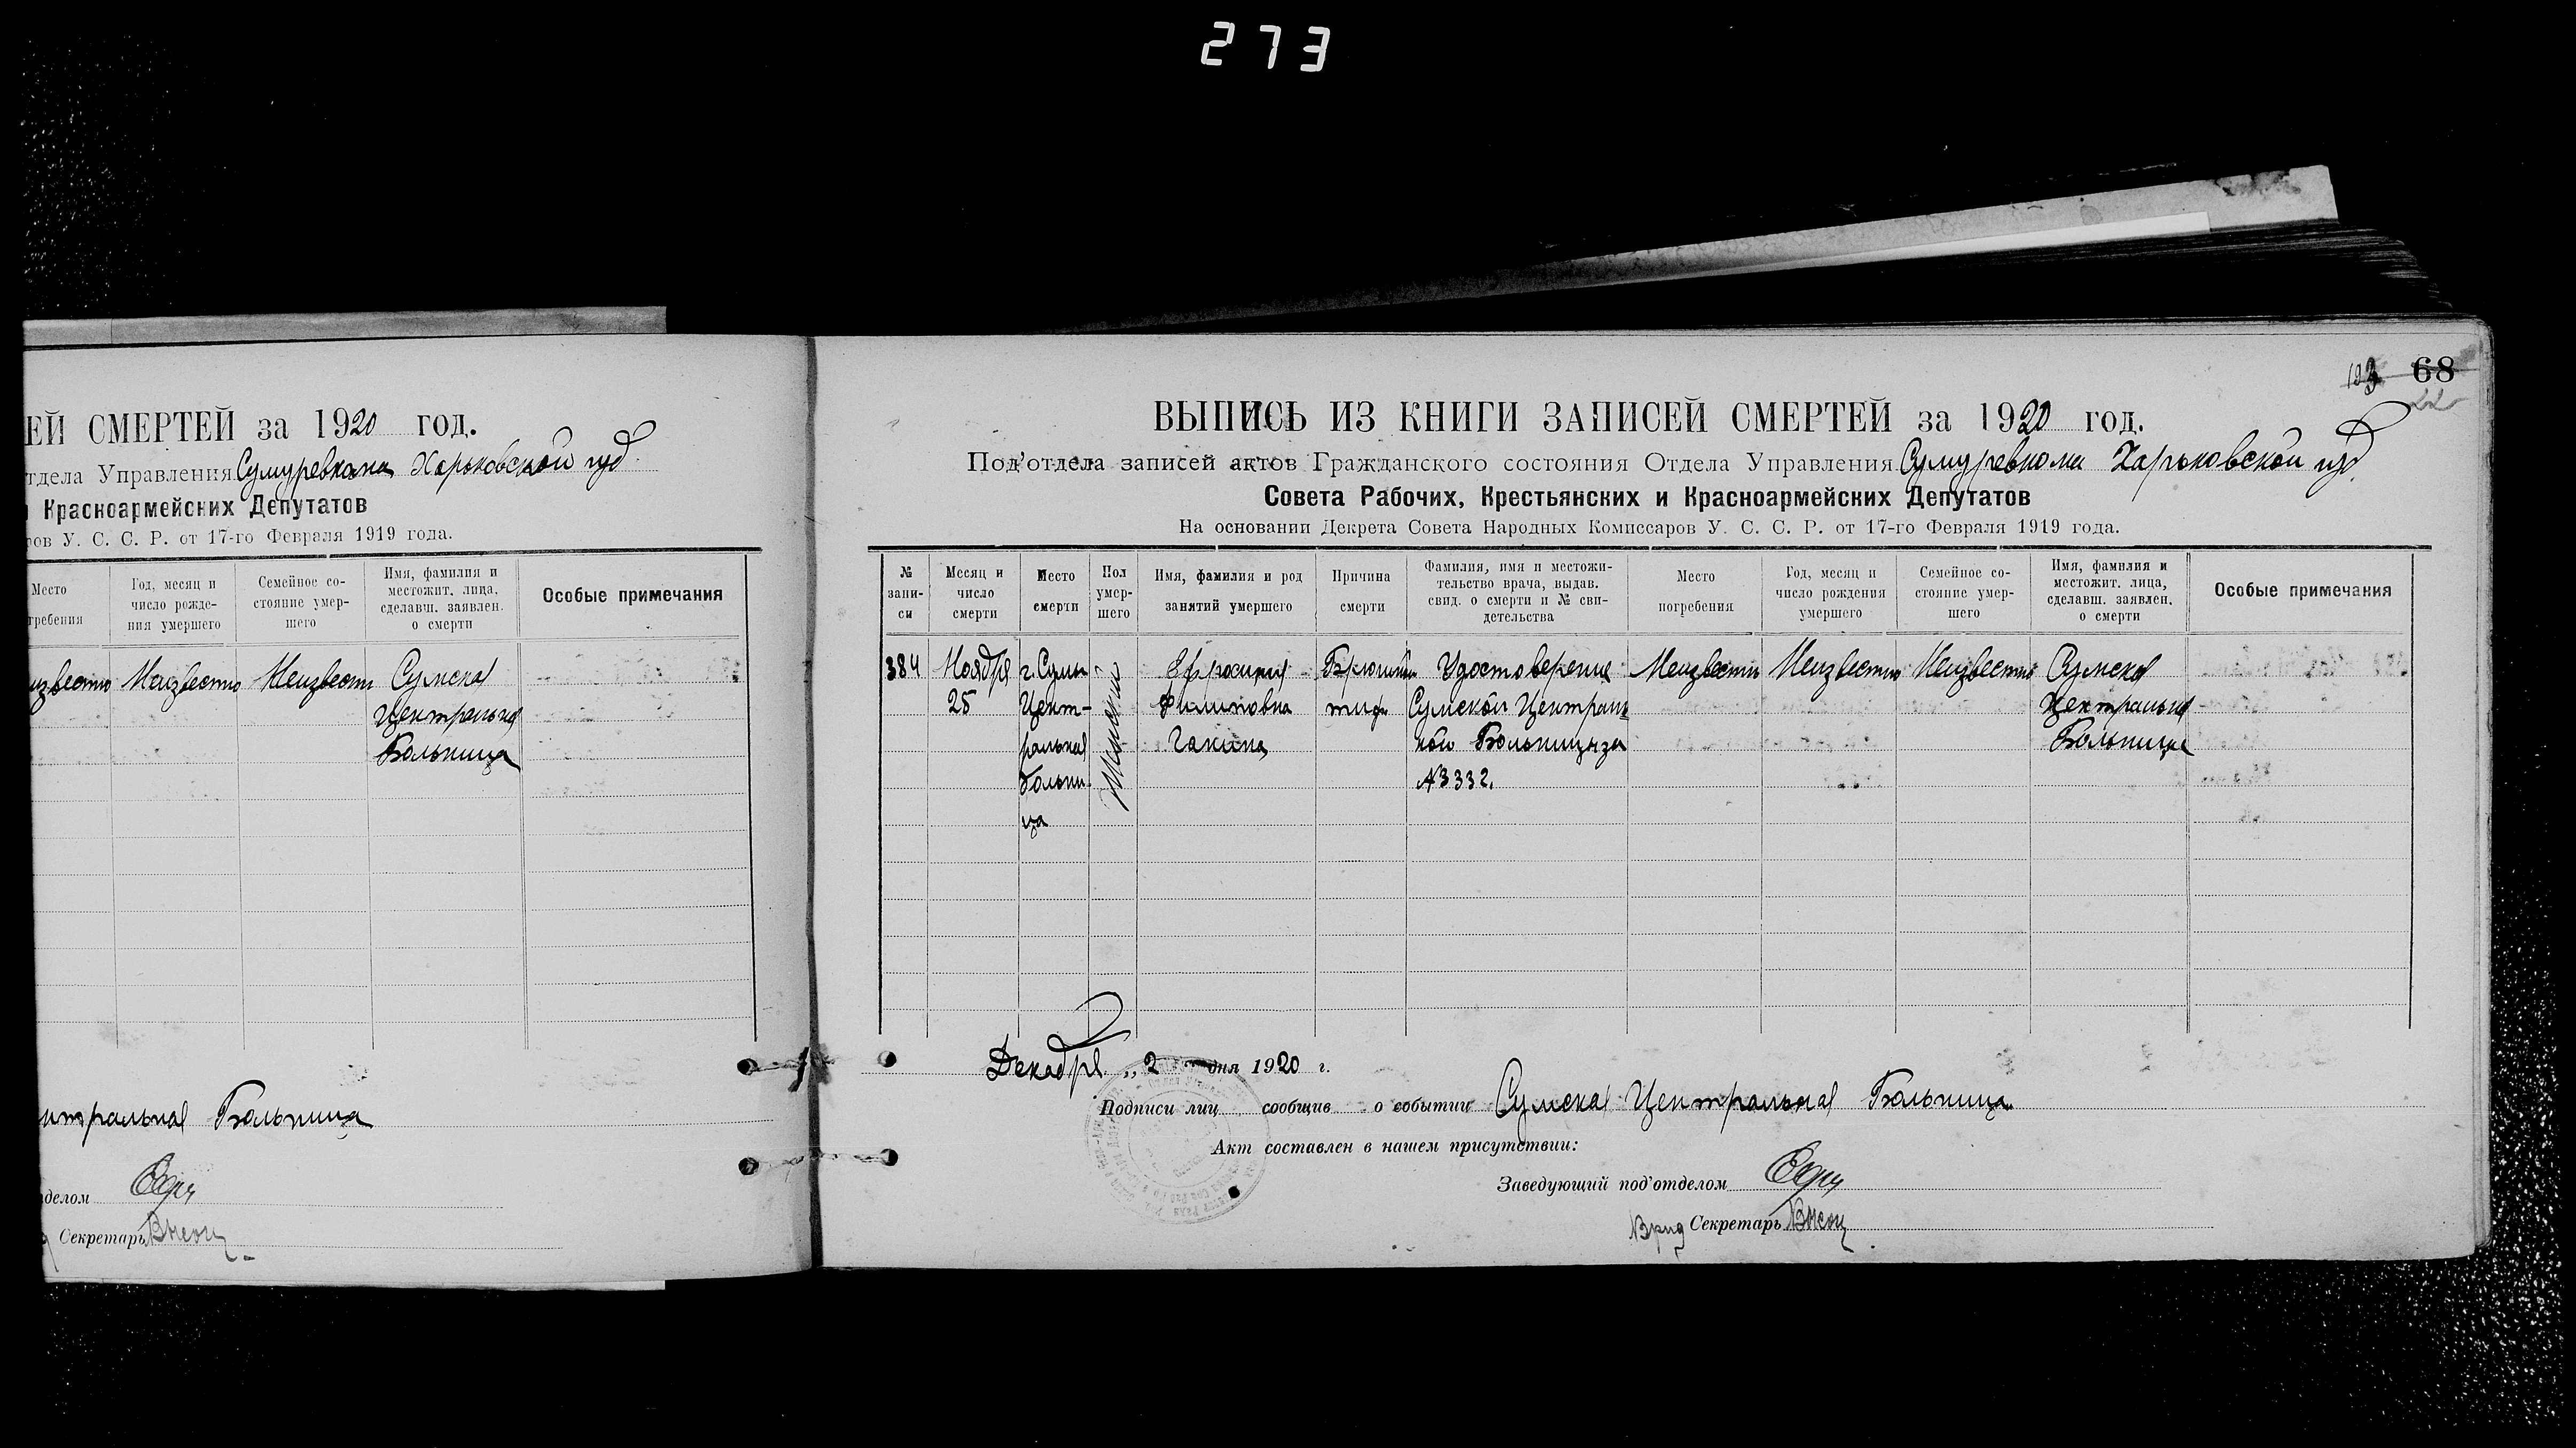 273
ЕЙ СМЕРТЕЙ за 1920 год.
тдела Управления Сумуревкома Харьковской губ.
Красноармейских Депутатов
ов У. С. С. Р. от 17-го Февраля 1919 года.
Место
гребения
Год, месяц и
число рожде-
ния умершего
Семейное со-
стояние умер-
шего
Имя, фамилия и
местожит. лица,
сделавш. заявлен.
о смерти
Особые примечания
известно Неизвестно Неизвестн Сумская
Центральная
Больница
нтральная Больница
делом
Секретарь
68
22
ВЫПИСЬ ИЗ КНИГИ ЗАПИСЕЙ СМЕРТЕЙ за 1920 год.
Под'отдела записей актов Гражданского состояния Отдела Управления Сумуревкома Харьковской губ.
Совета Рабочих, Крестьянских и Красноармейских Депутатов
На основании Декрета Совета Народных Комиссаров У. С. С. Р. от 17-го Февраля 1919 года.
№
запи-
си
Месяц и
число
смерти
Место
смерти
Пол
умер-
шего
Имя, фамилия и род
занятий умершего
Причина
смерти
Фамилия, имя и местожи-
тельство врача, выдав.
свид. о смерти и № сви-
детельства
Место
погребения
Год, месяц и
число рождения
умершего
Семейное со-
стояние умер-
шего
Имя, фамилия и
местожит. лица,
сделавш. заявлен.
о смерти
Особые примечания
384
Ноября
25
г. Сумы
Цент-
ральная
больни-
ца
Ефросиния
Филиповна
Гакина
Брюшной
тиф
Удостоверение
Сумской Централь
ной Больницы за
№3332.
Неизвестно
Неизвестно
Неизвестно
Сумская
Центральная
Больница
Декабря „2 дня 1920 г.
Подписи лиц сообщив о событии Сумская Центральная Больница
Акт составлен в нашем присутствии:
Заведующий под'отделом
Врид Секретарь